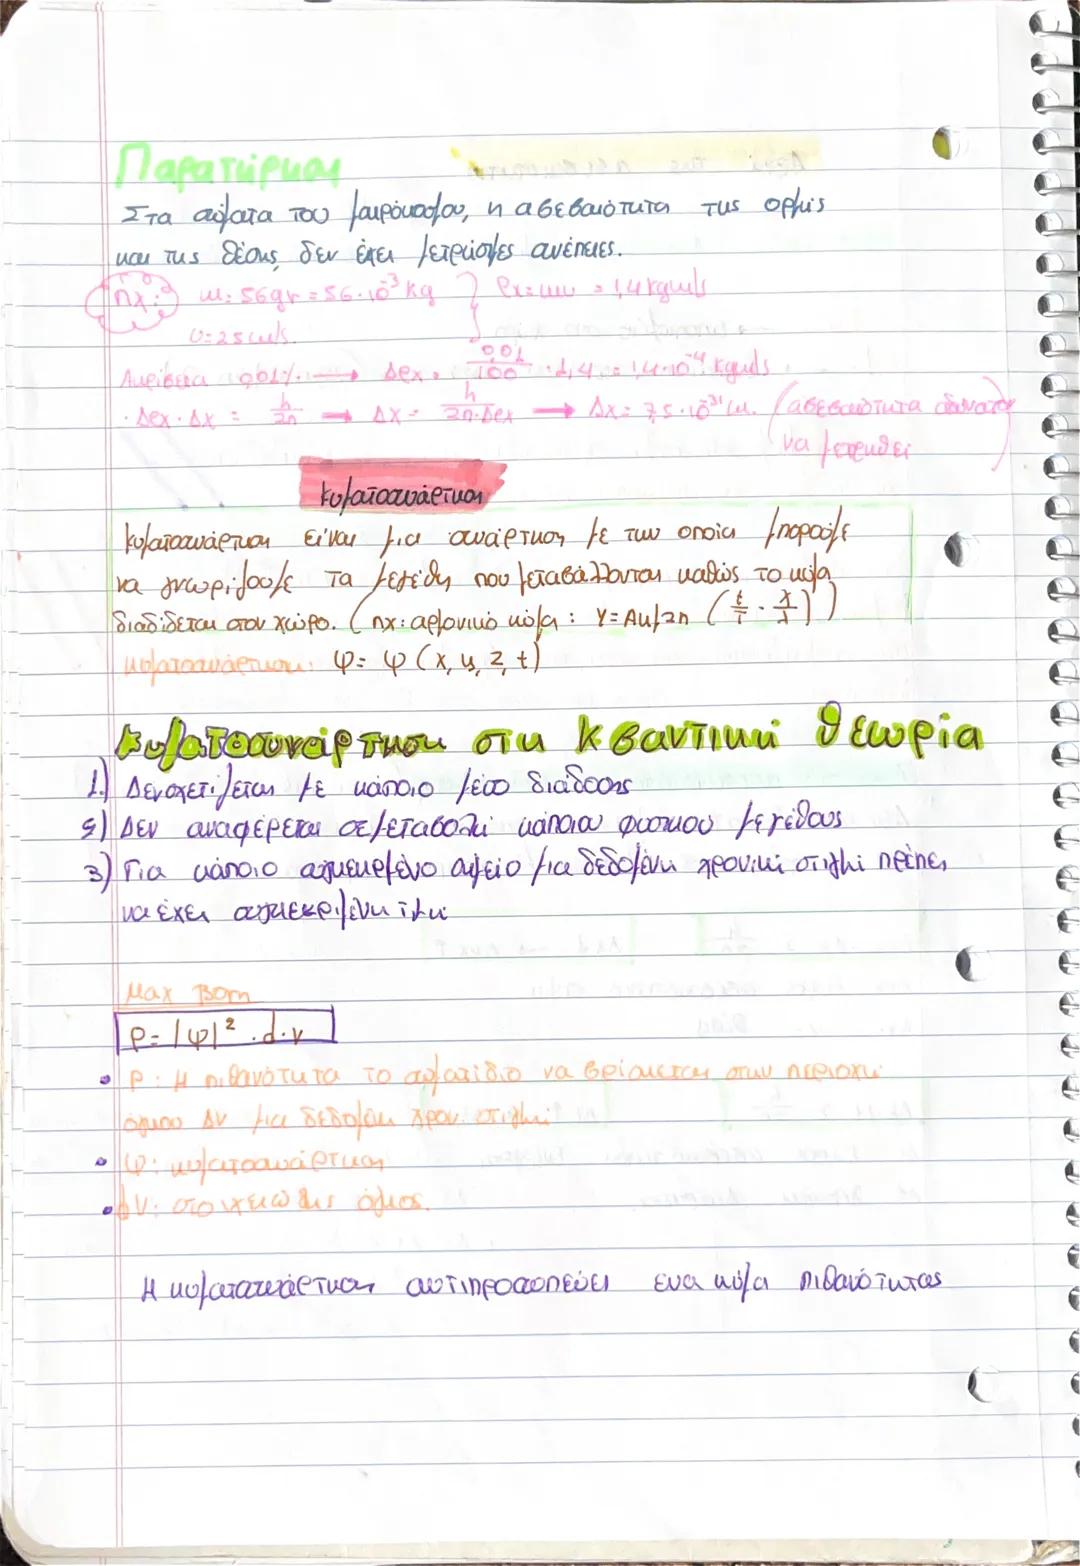 Παρατήρηση
Στα σώματα του μακρόκοσμου, η αβεβαιότητα της ορμής
και της θέσης δεν έχει μετρήσιμες συνέπειες.
πχ: m: 56gr = 56·10⁻³ kg } Px = mv = 1,4 kgm/s
υ = 25 m/s.
Ακρίβεια 0,01% → ΔPx = 0,01/100 · 1,4 = 1,4·10⁻⁴ kgm/s
· ΔPx · Δx = h/2π → Δx = h/2π·ΔPx → Δx = 7,5·10⁻³¹ m. (αβεβαιότητα αδύνατον
να μετρηθεί)
Κυματοσυνάρτηση
Κυματοσυνάρτηση είναι μια συνάρτηση με την οποία μπορούμε
να γνωρίζουμε τα μεγέθη που μεταβάλλονται καθώς το κύμα
διαδίδεται στον χώρο. (πχ: αρμονικό κύμα: Y = Aημ2π (t/T - x/λ))
κυματοσυνάρτηση: ψ = ψ (x, y, z, t)
Κυματοσυνάρτηση στη Κβαντική Θεωρία
1.) Δεν σχετίζεται με κάποιο μέσο διάδοσης
2) Δεν αναφέρεται σε μεταβολή κάποιου φυσικού μεγέθους
3) Για κάποιο συγκεκριμένο σημείο μια δεδομένη χρονική στιγμή πρέπει
να έχει συγκεκριμένη τιμή
Max Born
P = |ψ|² · d·V
• P: Η πιθανότητα το σωματίδιο να βρίσκεται στην περιοχή
όγκου ΔV μια δεδομένη χρον. στιγμή
• ψ: κυματοσυνάρτηση
• dV: στοιχειώδης όγκος.
Η κυματοσυνάρτηση αντιπροσωπεύει ένα κύμα πιθανότητας